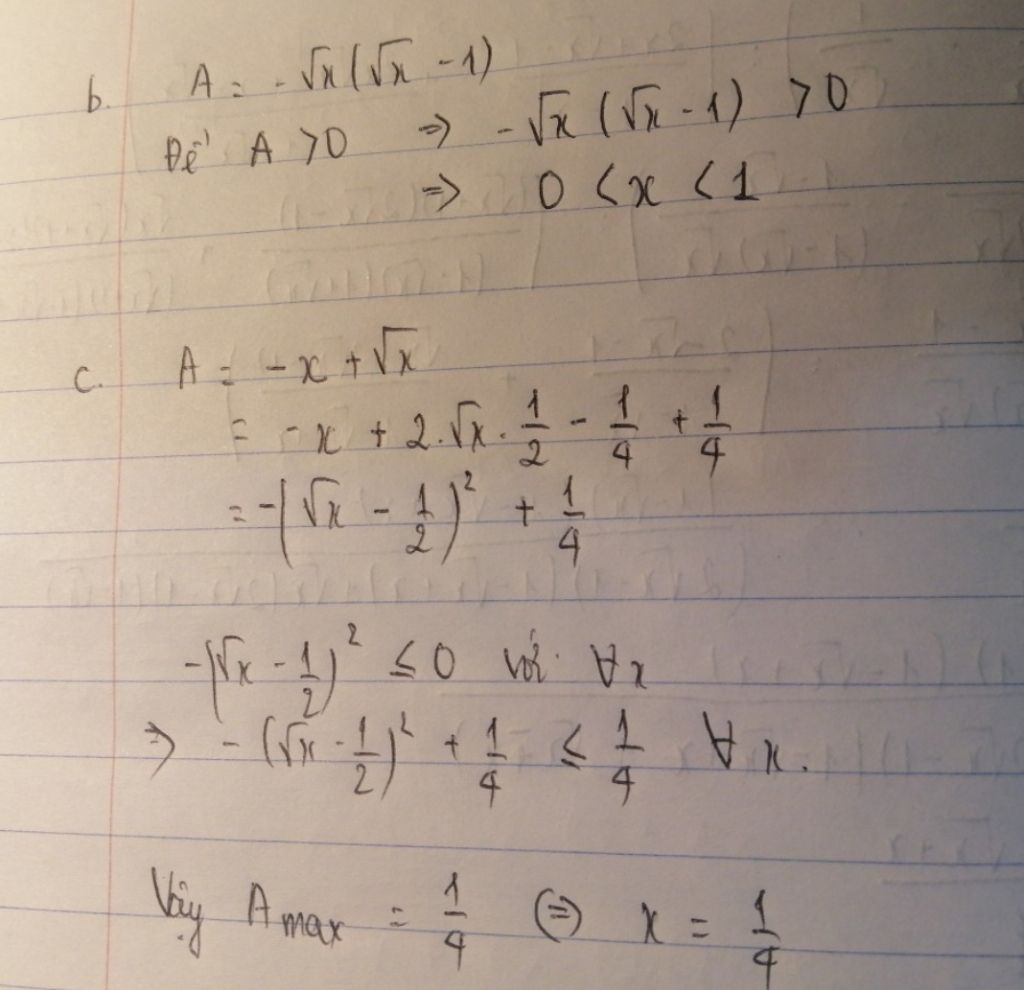 b. A = -√x(√x - 1)
Để A > 0 => -√x (√x - 1) > 0
=> 0 < x < 1
c. A = -x + √x
= -x + 2.√x.1/2 - 1/4 + 1/4
= -(√x - 1/2)² + 1/4
-(√x - 1/2)² ≤ 0 với ∀x
=> -(√x - 1/2)² + 1/4 ≤ 1/4 ∀x.
Vậy A max = 1/4 <=> x = 1/4